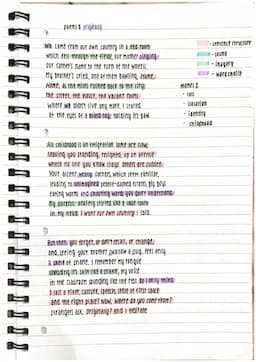 poem 2 originally
1
We came from our own country in a red room
which fell through the fields, our mother singing
our father's name to the turn of the wheels.
My brothers cried, one of them bawling, Home,
Home, as the miles rushed back to the city,
the street, the house, the vacant rooms
where we didn't live any more. I stared
at the eyes of a blind toy, holding its paw.
2
All childhood is an emigration. Some are slow,
leaving you standing, resigned, up an avenue
where no one you know stays. Others are sudden.
Your accent wrong. Corners, which seem familiar,
leading to unimagined pebble-dashed estates, big boys
eating worms and shouting words you don't understand.
My parents' anxiety stirred like a loose tooth
in my head. I want our own country, I said.
3
But then you forget, or don't recall, or change,
and, seeing your brother swallow a slug, feel only
a skelf of shame. I remember my tongue
shedding its skin like a snake, my voice
in the classroom sounding like the rest. Do I only think
I lost a river, culture, speech, sense of first space
and the right place? Now, Where do you come from?
strangers ask. Originally? And I hesitate.
- sentence structure
- sound
- imagery
- word choice
themes :
- isolation
- identity
- childhood